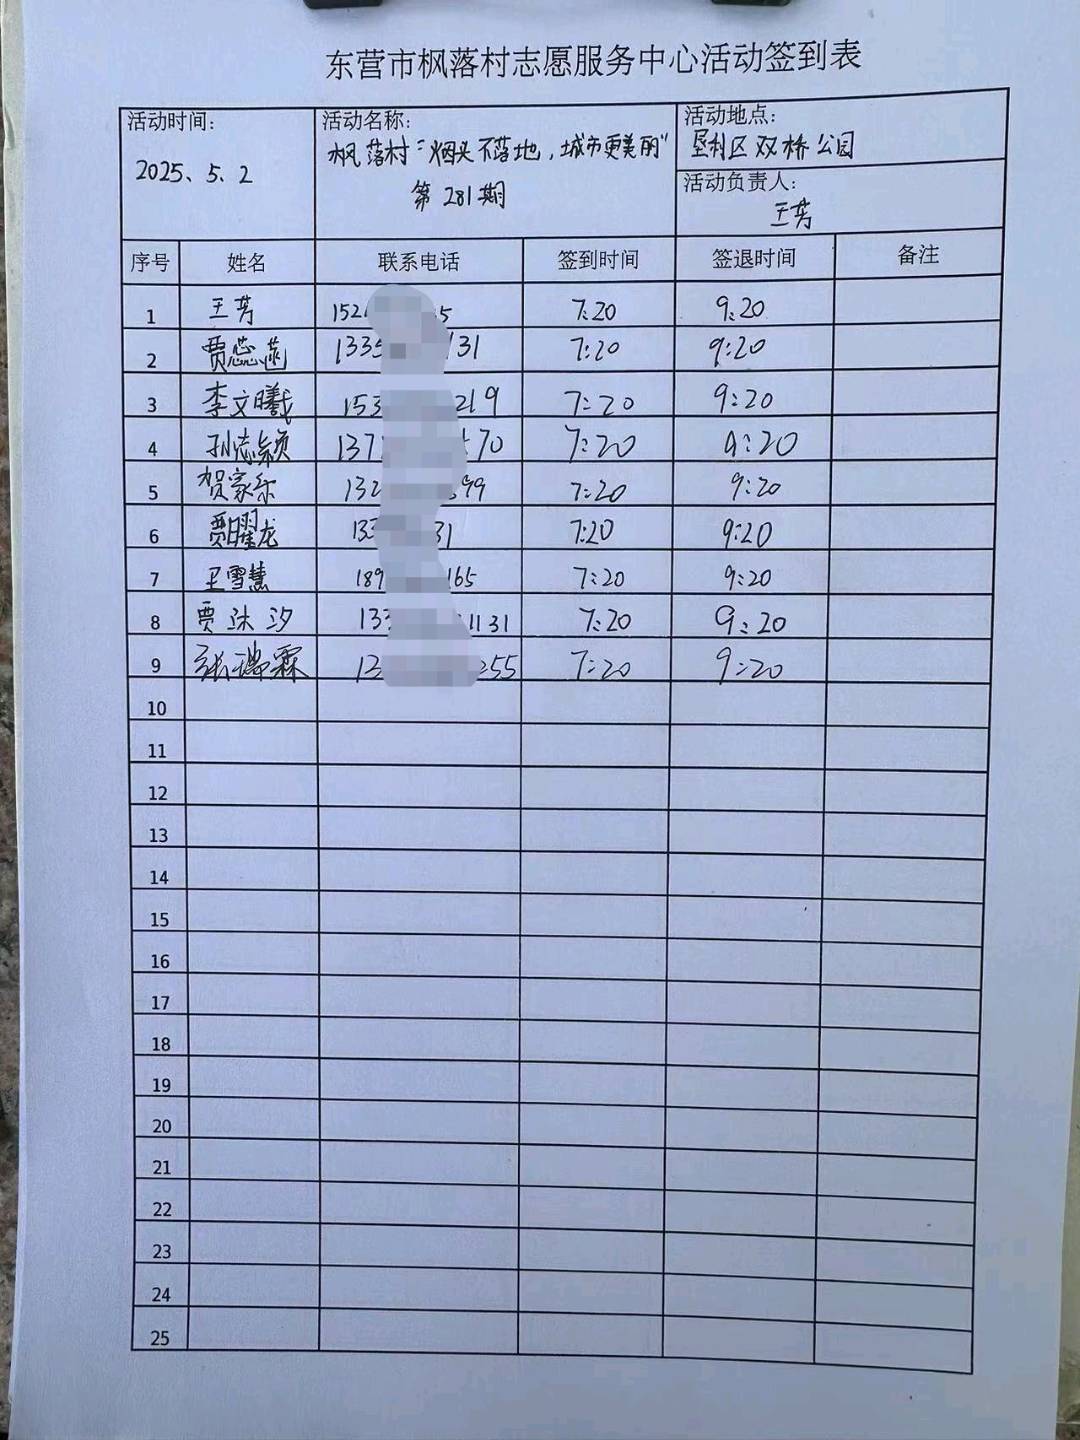 东营市枫落村志愿服务中心活动签到表
活动时间:
2025、5、2
活动名称:
枫落村“烟头不落地,城市更美丽”
第281期
活动地点:
垦利区双桥公园
活动负责人:
王芳
序号 姓名 联系电话 签到时间 签退时间 备注
1 王芳 152 5 7:20 9:20
2 贾蕊菡 1335 131 7:20 9:20
3 李文曦 153 219 7:20 9:20
4 孙志颖 137 70 7:20 9:20
5 贺家乐 132 99 7:20 9:20
6 贾曜龙 133 31 7:20 9:20
7 王雪慧 189 165 7:20 9:20
8 贾沐汐 133 1131 7:20 9:20
9 张瑞霖 13 255 7:20 9:20
10
11
12
13
14
15
16
17
18
19
20
21
22
23
24
25